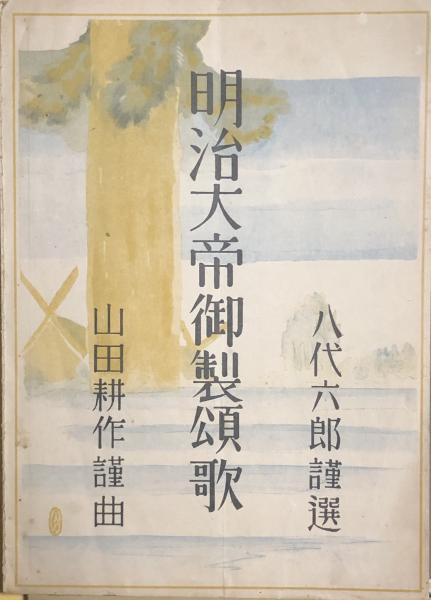 八代六郎謹選
明治大帝御製頌歌
山田耕作謹曲